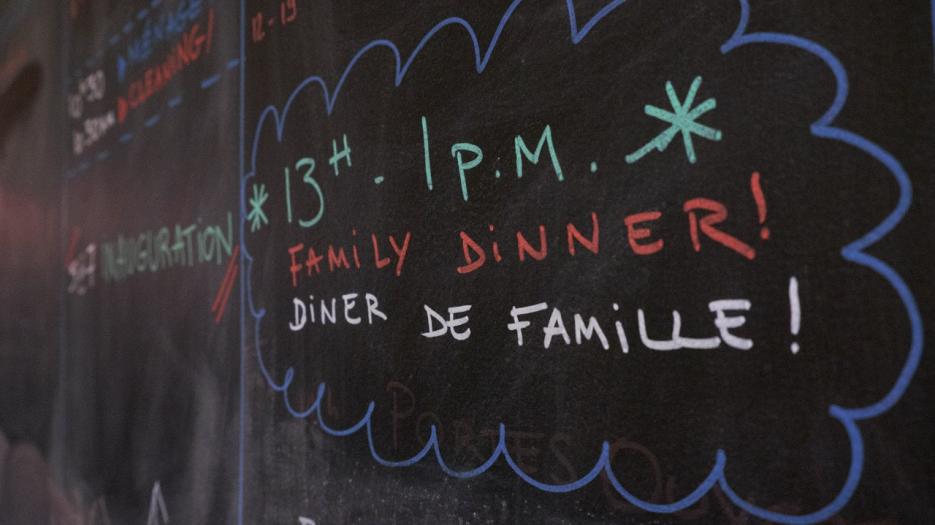 12-19
MÉNAGE
CLEANING!
INAUGURATION
*13H - 1 P.M. *
FAMILY DINNER!
DINER DE FAMILLE!
PORTES